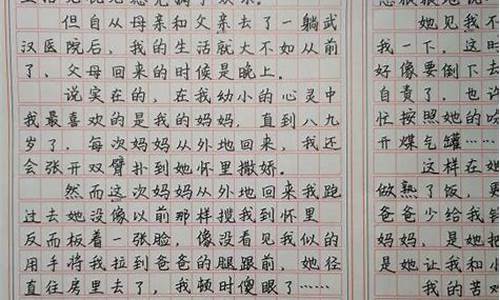 但自从母亲和父亲去了一躺武
汉医院后，我的生活就大不如从前
了、父母回来的时候是晚上。
说实在的，在我幼小的心灵中
我最喜欢的是我的妈妈，直到八九
岁了，每次妈妈从外地回来，我还
会张开双臂扑到她怀里撒娇。
然而这次妈妈从外地回来我跑
过去她没像以前那样搅我到怀里
反而板着一张脸，像没看见我似的
用手将我拉到爸爸的腿跟前，她径
直往房里去了，我顿时傻眼了……
她见我不
我一下，这时
好像要倒下去
自责了，也许
忙按照她的吩
开煤气罐……
这样在她
做熟了饭，
爸爸少给我
妈妈，是她把
是她让我和小
我的苦